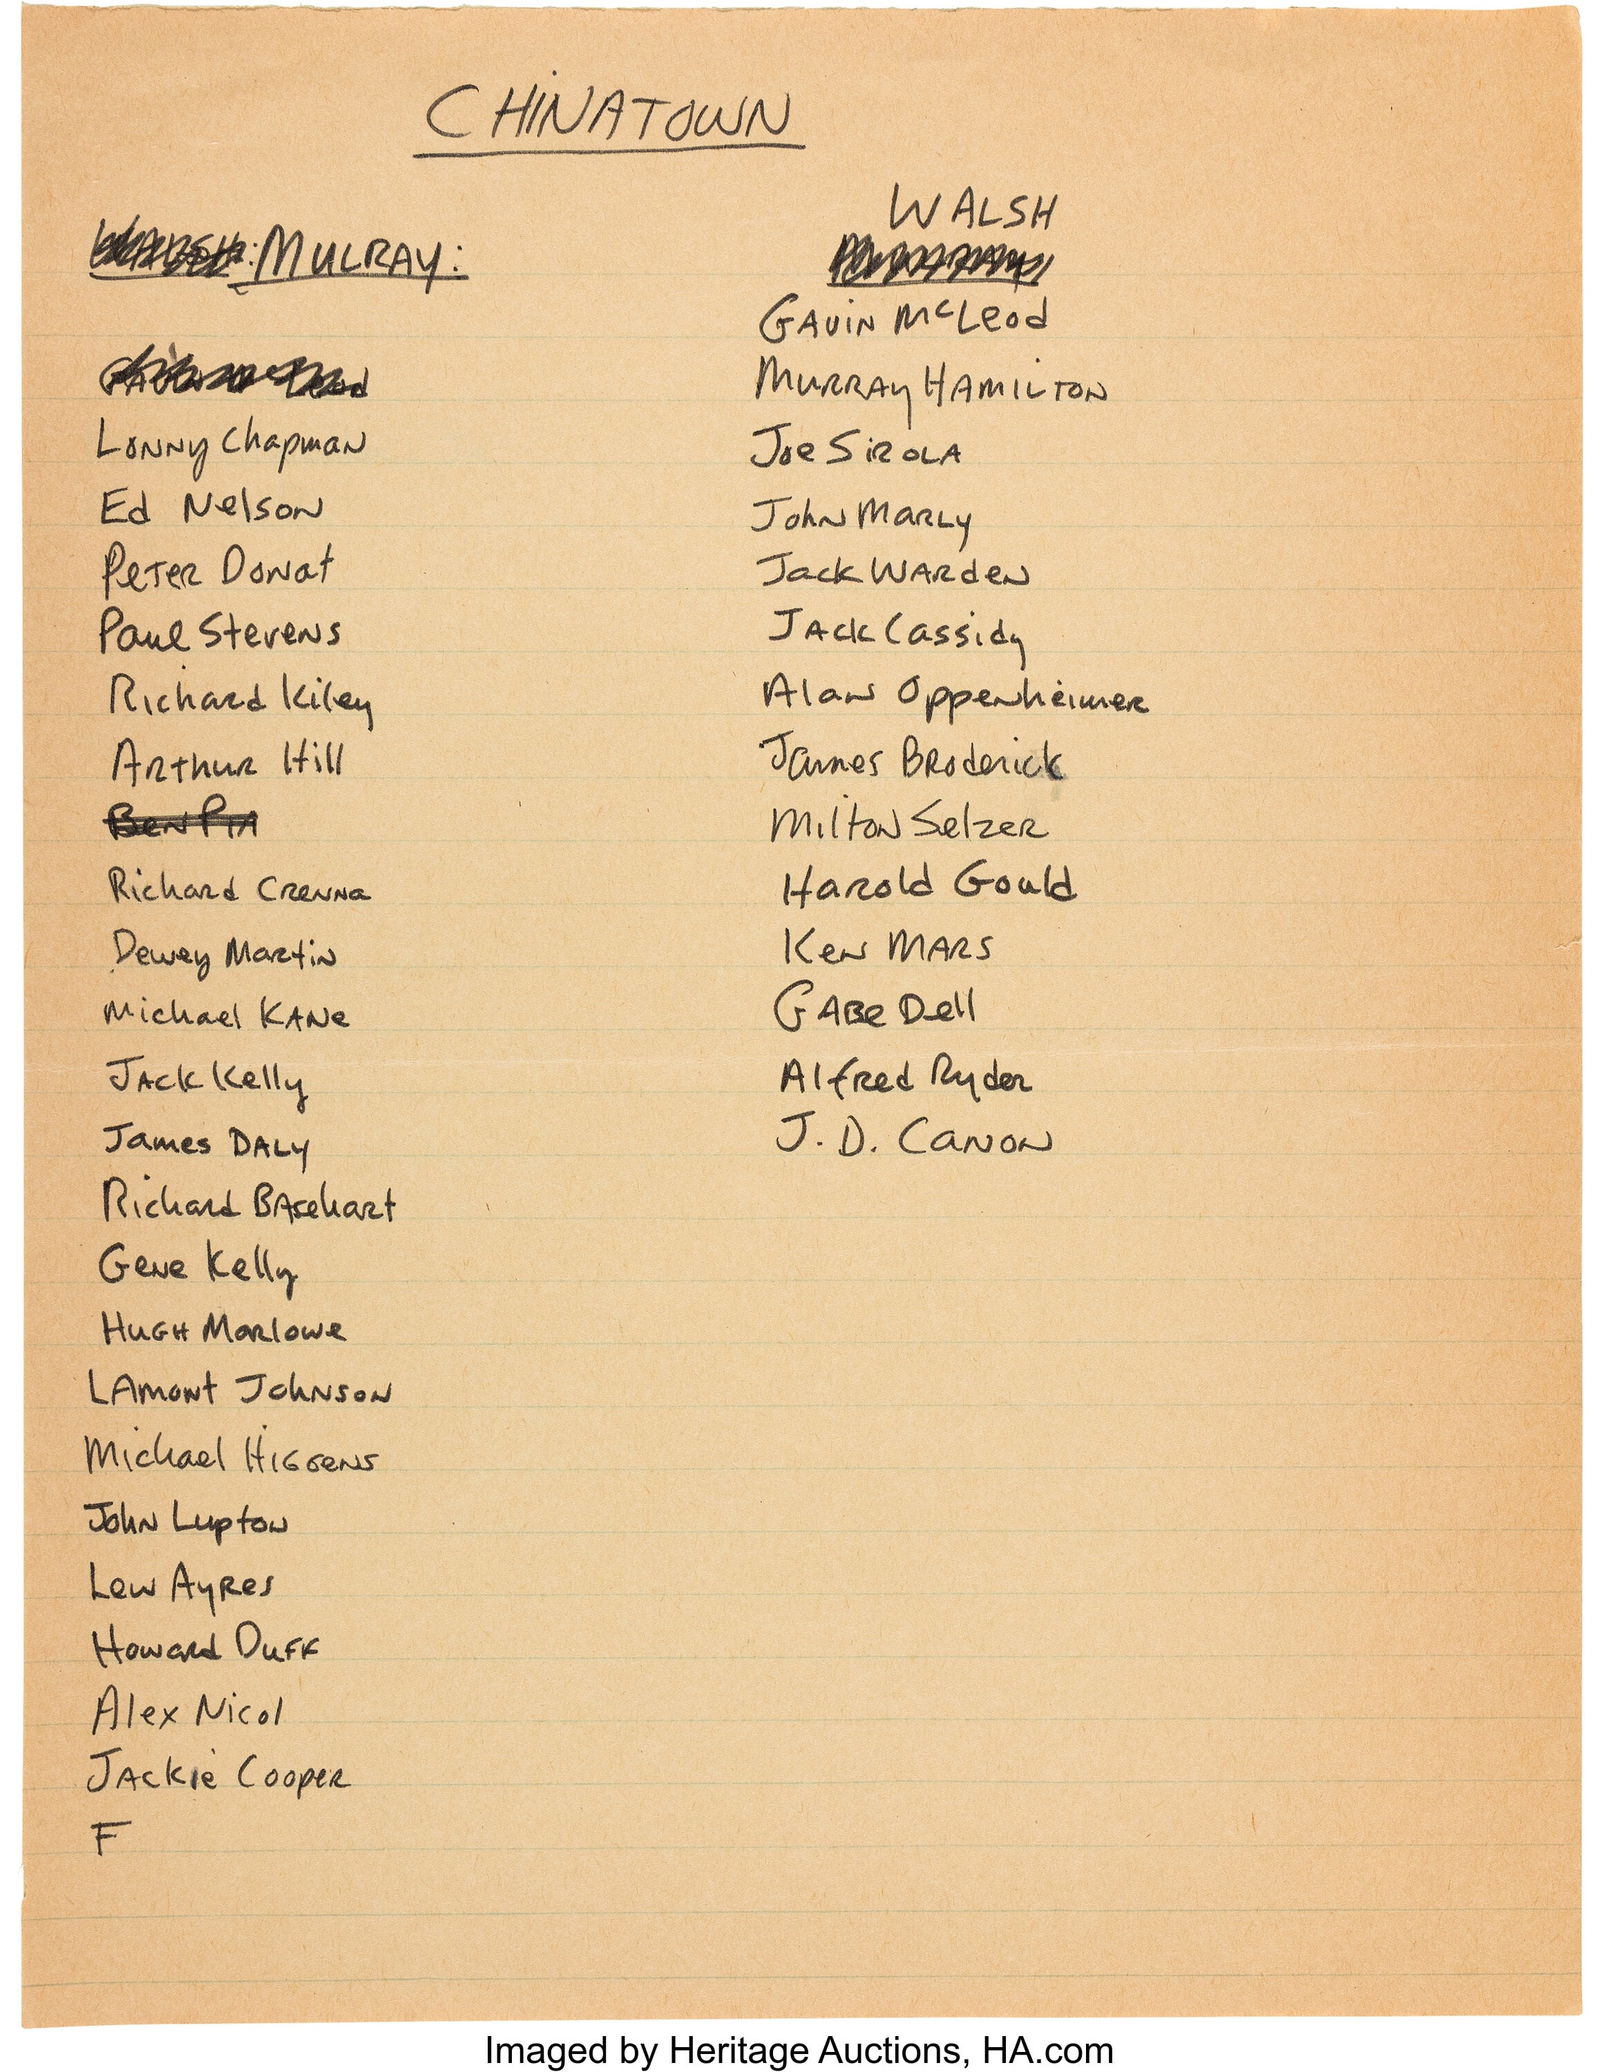 CHINATOWN
MULRAY:
Lonny Chapman
Ed Nelson
Peter Donat
Paul Stevens
Richard Kiley
Arthur Hill
Ben Pia
Richard Crenna
Dewey Martin
Michael Kane
Jack Kelly
James Daly
Richard Basehart
Gene Kelly
Hugh Marlowe
Lamont Johnson
Michael Higgens
John Lupton
Lew Ayres
Howard Duff
Alex Nicol
Jackie Cooper
F
WALSH
Gavin McLeod
Murray Hamilton
Joe Sirola
John Marly
Jack Warden
Jack Cassidy
Alan Oppenheimer
James Broderick
Milton Selzer
Harold Gould
Ken Mars
Gabe Dell
Alfred Ryder
J. D. Canon
Imaged by Heritage Auctions, HA.com